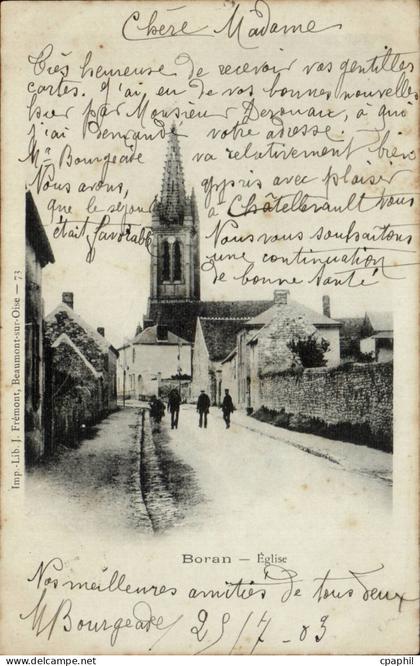 Chère Madame
Très heureuse de recevoir vos gentilles
cartes. J'ai eu de vos bonnes nouvelles
hier par Monsieur Dezouaix, à qui
j'ai demandé votre adresse.
Mr Bourgeade va relativement bien
Nous avons, appris avec plaisir
que le séjour à Châtellerault vous
était favorable
Nous vous souhaitons
une continuation
de bonne santé
Imp.-Lib. J. Frémont, Beaumont-sur-Oise — 73
Boran — Église
Nos meilleures amitiés de tous deux
M Bourgeade 25/7-03